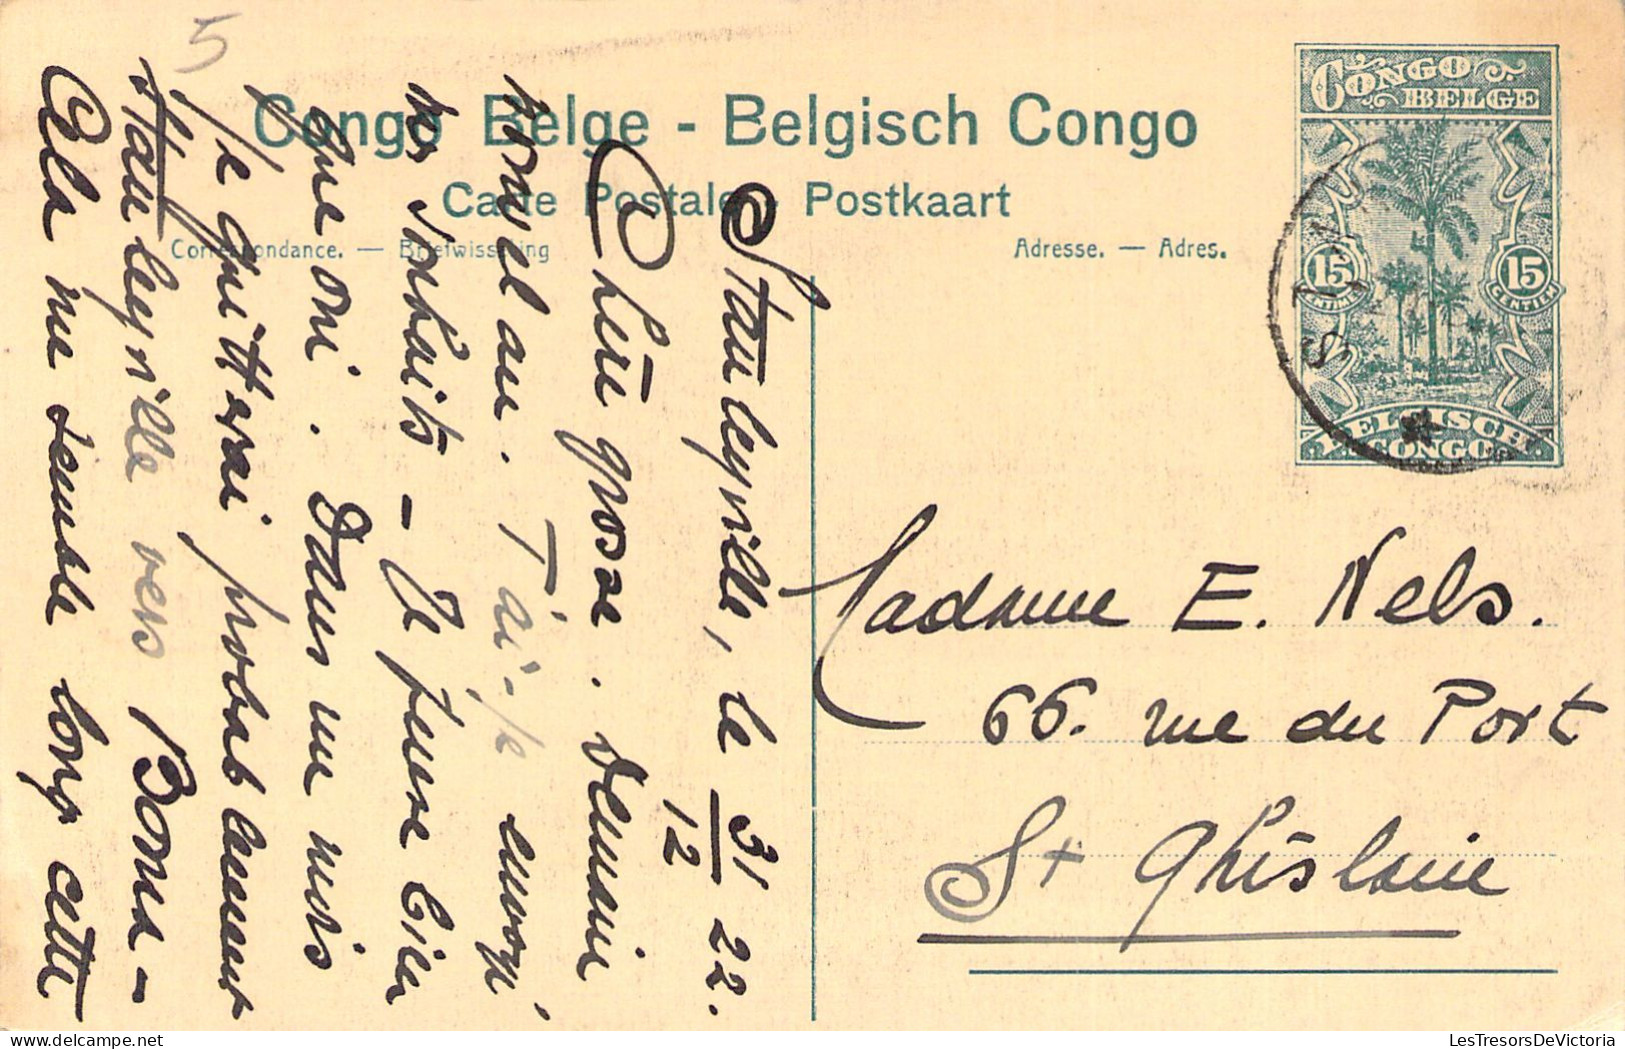 5
Congo Belge - Belgisch Congo
Carte Postale - Postkaart
Correspondance. — Briefwisseling
Adresse. — Adres.
CONGO
BELGE
15
CENTIMES
15
CENTIEM
BELGISCH
CONGO
Stanleyville, le 31/12 22.
Chère grosse. Demain
nouvel an. T'ai-je envoyé
nos souhaits - Je pense bien
que oui. Dans un mois
je quitterai probablement
Stanleyville vers Boma -
Cela me semble long cette
Madame E. Nels.
66. rue du Port
St Ghislain
LesTresorsDeVictoria